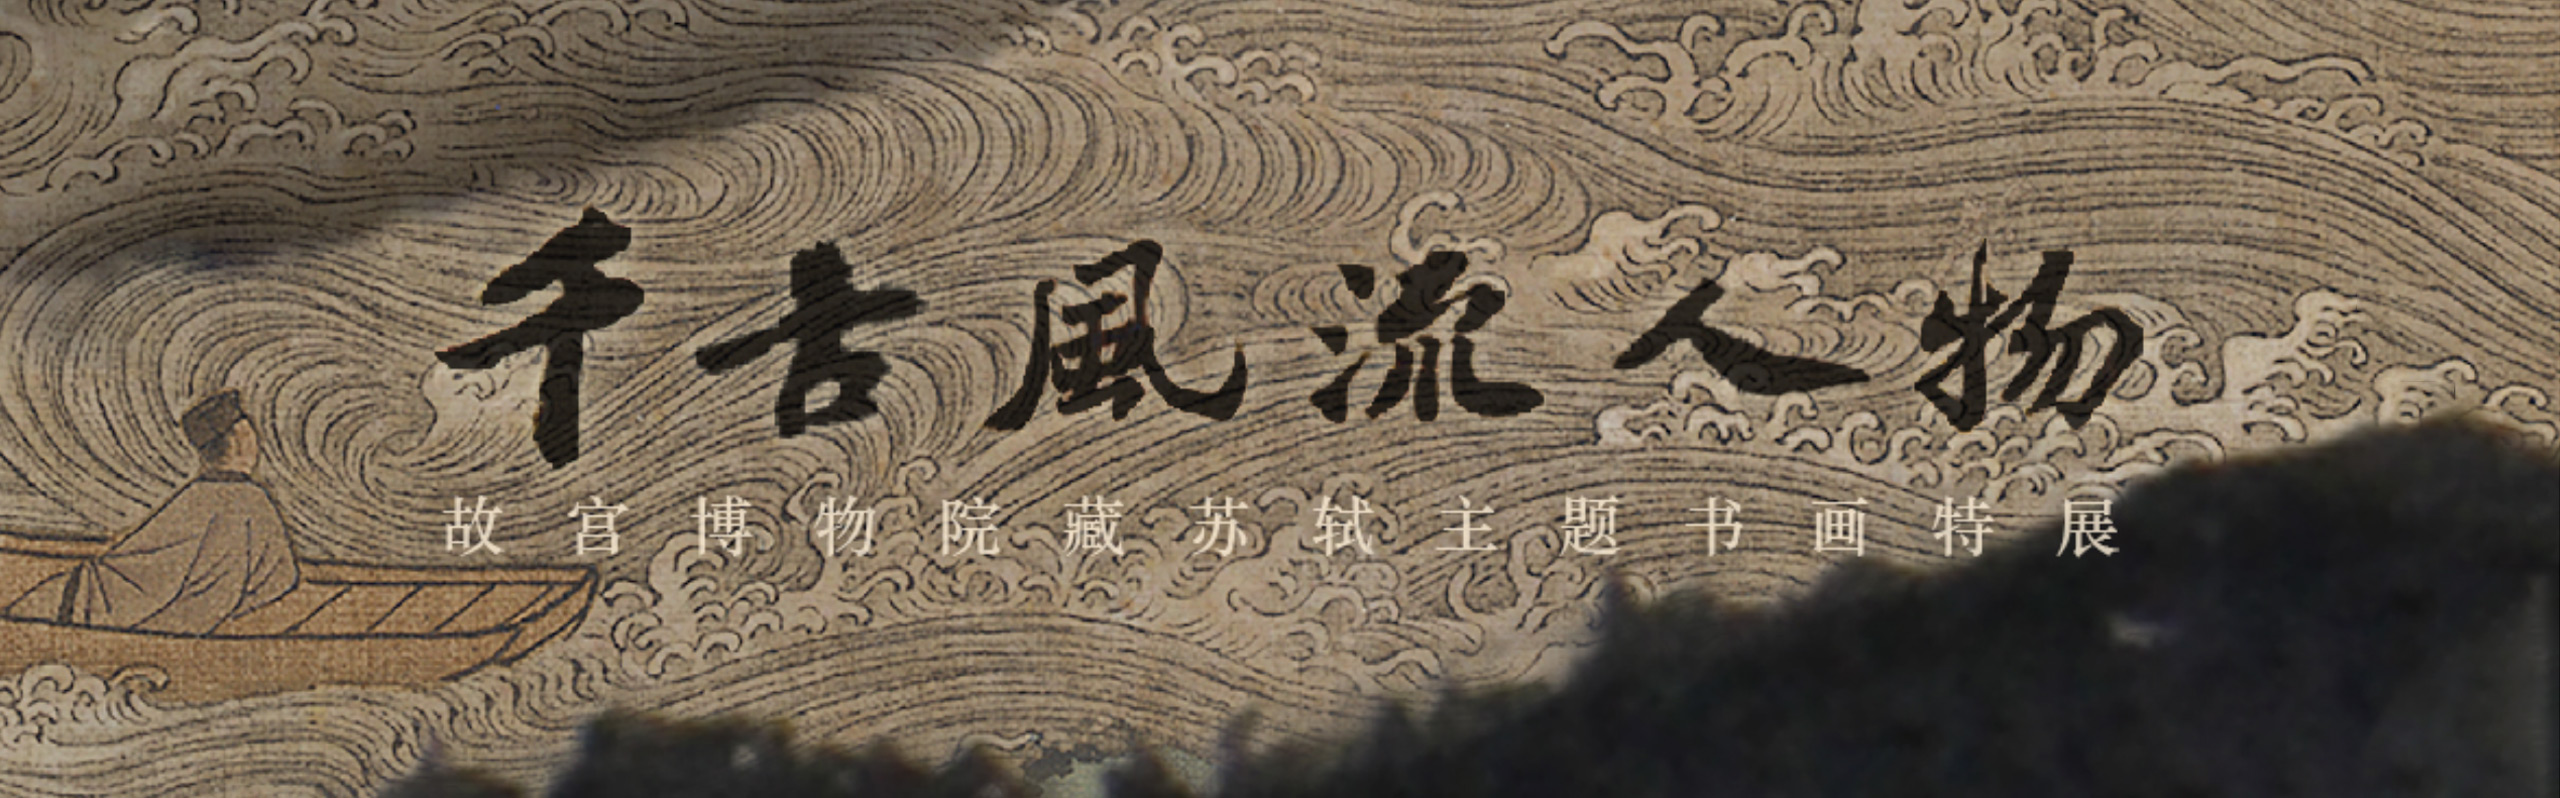 千古風流人物
故宫博物院藏苏轼主题书画特展